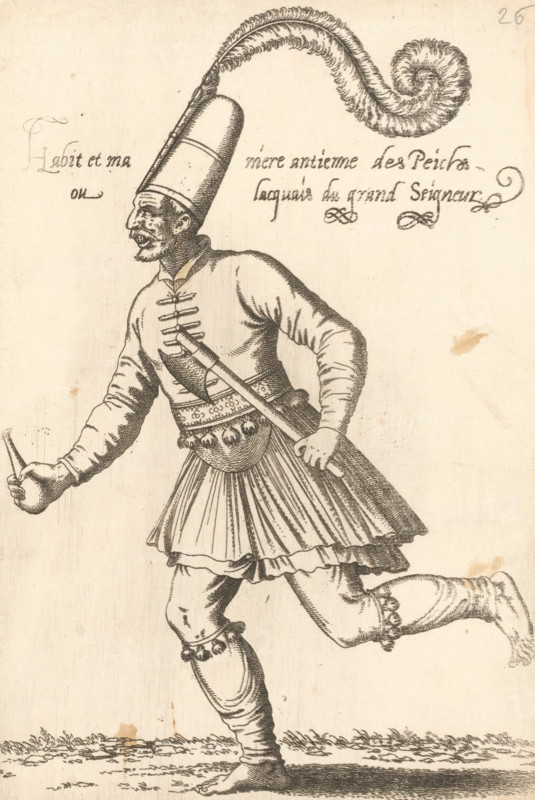 26
Habit et ma niere antienne des Peichs
ou lacquais du grand Seigneur